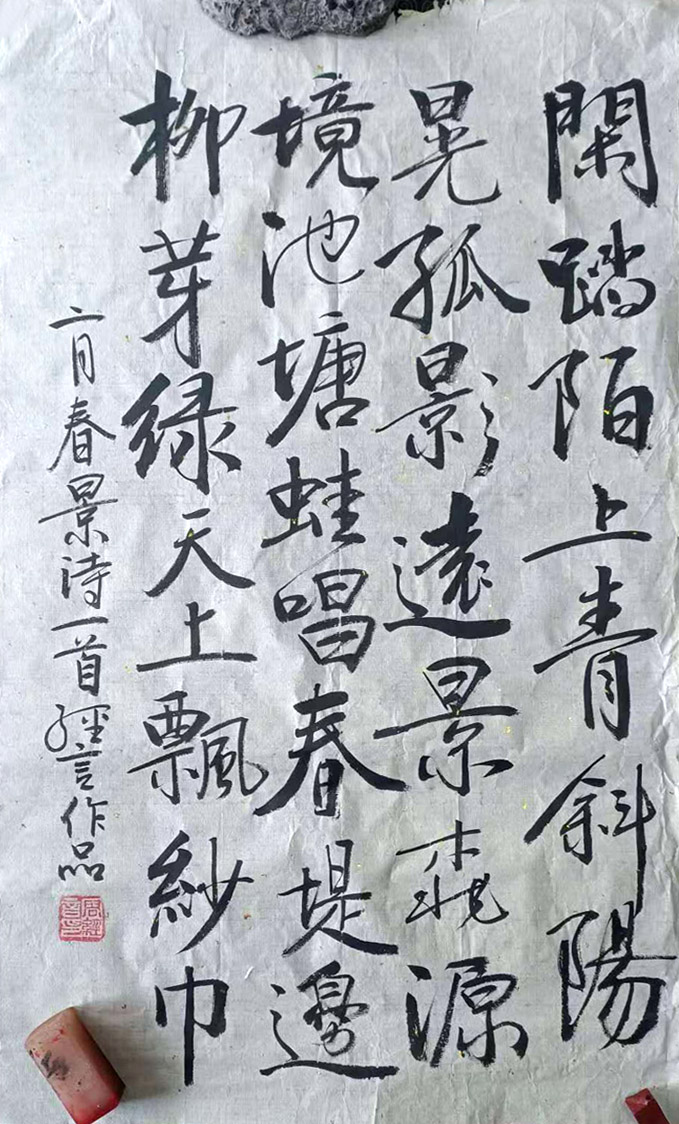 閑踏陌上青斜陽
晃孤影遠景桃源
境池塘蛙唱春堤邊
柳芽绿天上飄紗巾
二月春景诗一首經言作品